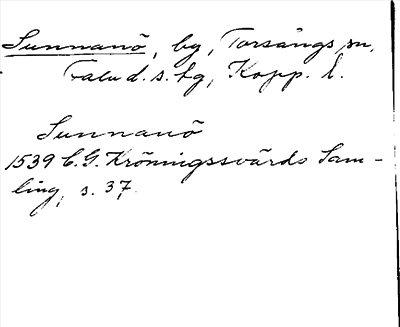 Sunnanö, by, Torsångs sn,
Falu d.s. tg, Kopp. l.
Sunnanö
1539 C.G. Kröningssvärds Sam-
ling, s. 37.